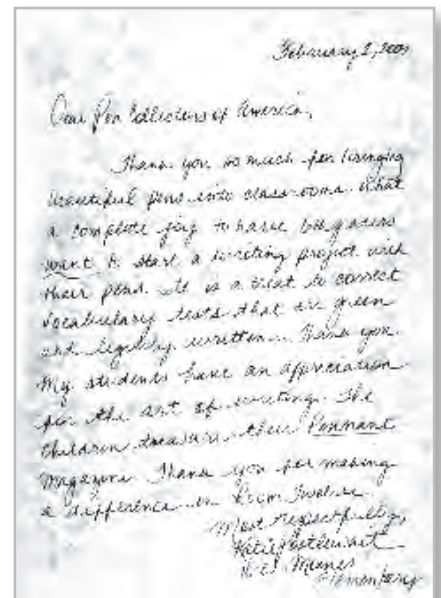 February 2, 200
Dear Pen Collectors of America,
Thank you so much for bringing
beautiful pens into classrooms. What
a complete joy to have
want to start a writing project with
their pens. It is a treat to correct
vocabulary tests that are green
and legibly written. Thank you.
My students have an appreciation
for the art of writing. The
children treasure their Pennant
magazine. Thank you for making
a difference in Room Twelve.
Most respectfully,
Katie Postlewait
Means
Elementary